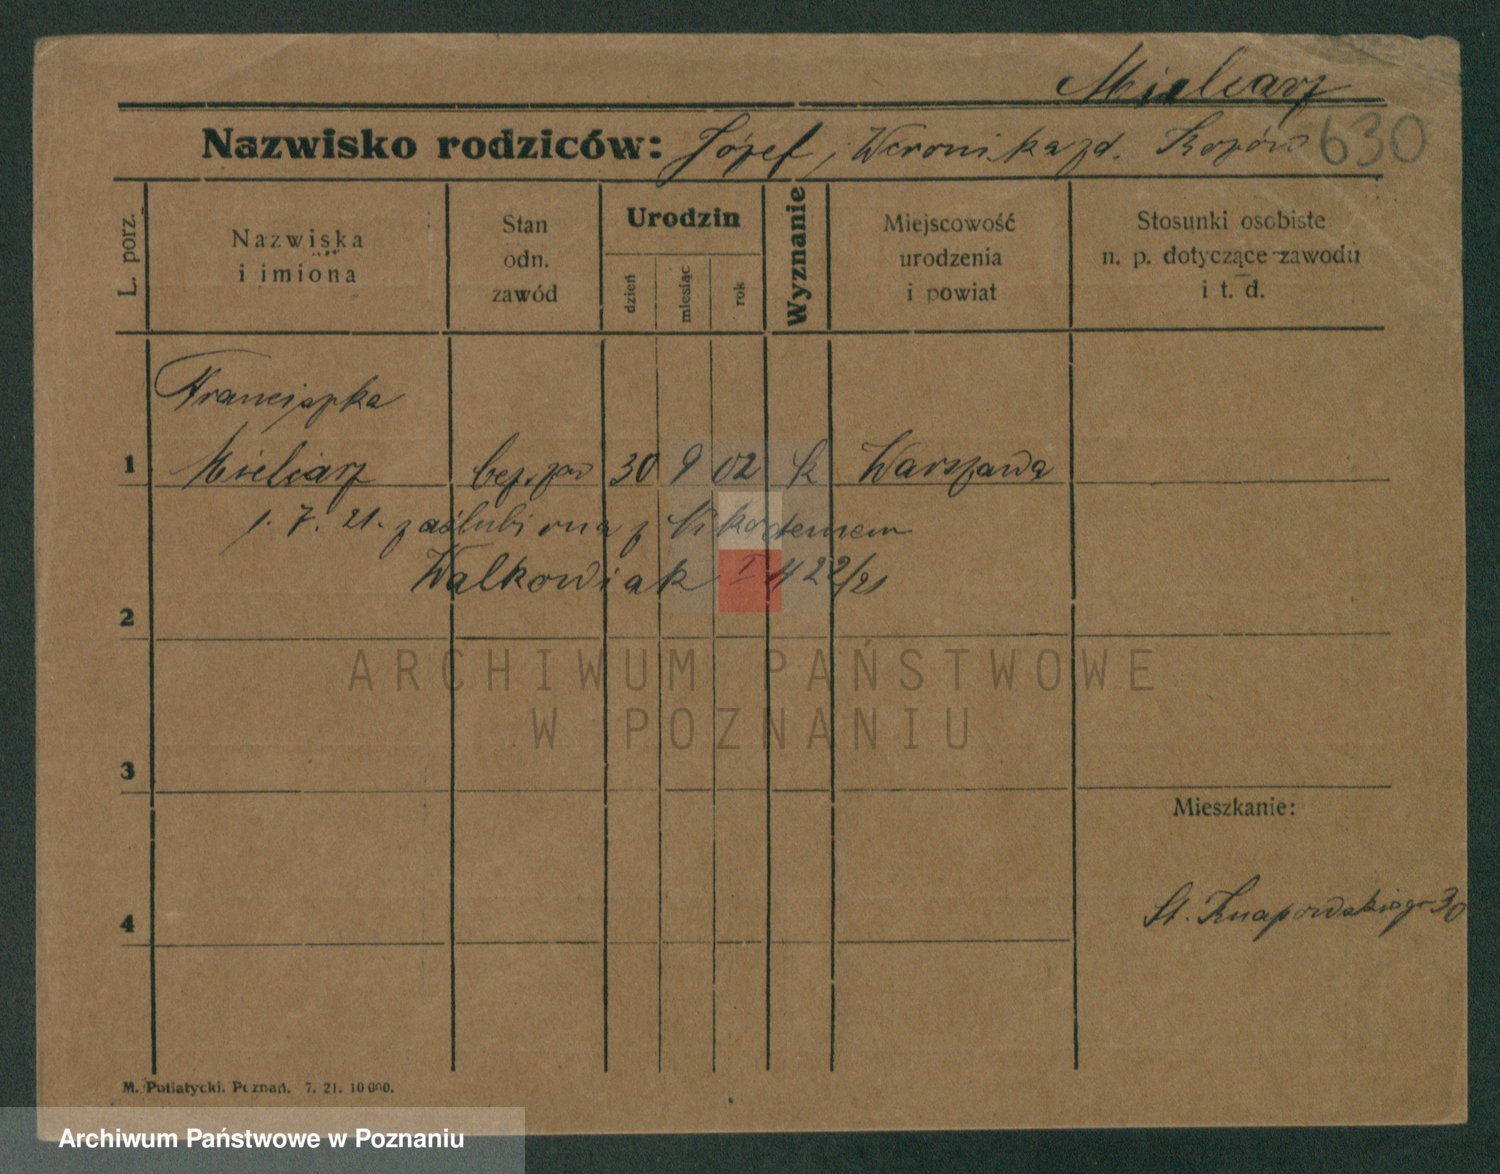 Mielcarz
Nazwisko rodziców: Józef, Weronika zd. 630
L. porz.
Nazwiska
i imiona
Stan
odn.
zawód
Urodzin
dzień
miesiąc
rok
Wyznanie
Miejscowość
urodzenia
i powiat
Stosunki osobiste
n. p. dotyczące zawodu
i t. d.
Franciszka
1 Mielcarz bez zaw 30 9 02 k Warszawa
1. 7. 21. zaślubiona z Nikodemem
Walkowiak I 422/21
2
ARCHIWUM PAŃSTWOWE
W POZNANIU
3
Mieszkanie:
4
St. Knapowskiego 30
M. Putiatycki. Poznań. 7. 21. 10 000.
Archiwum Państwowe w Poznaniu